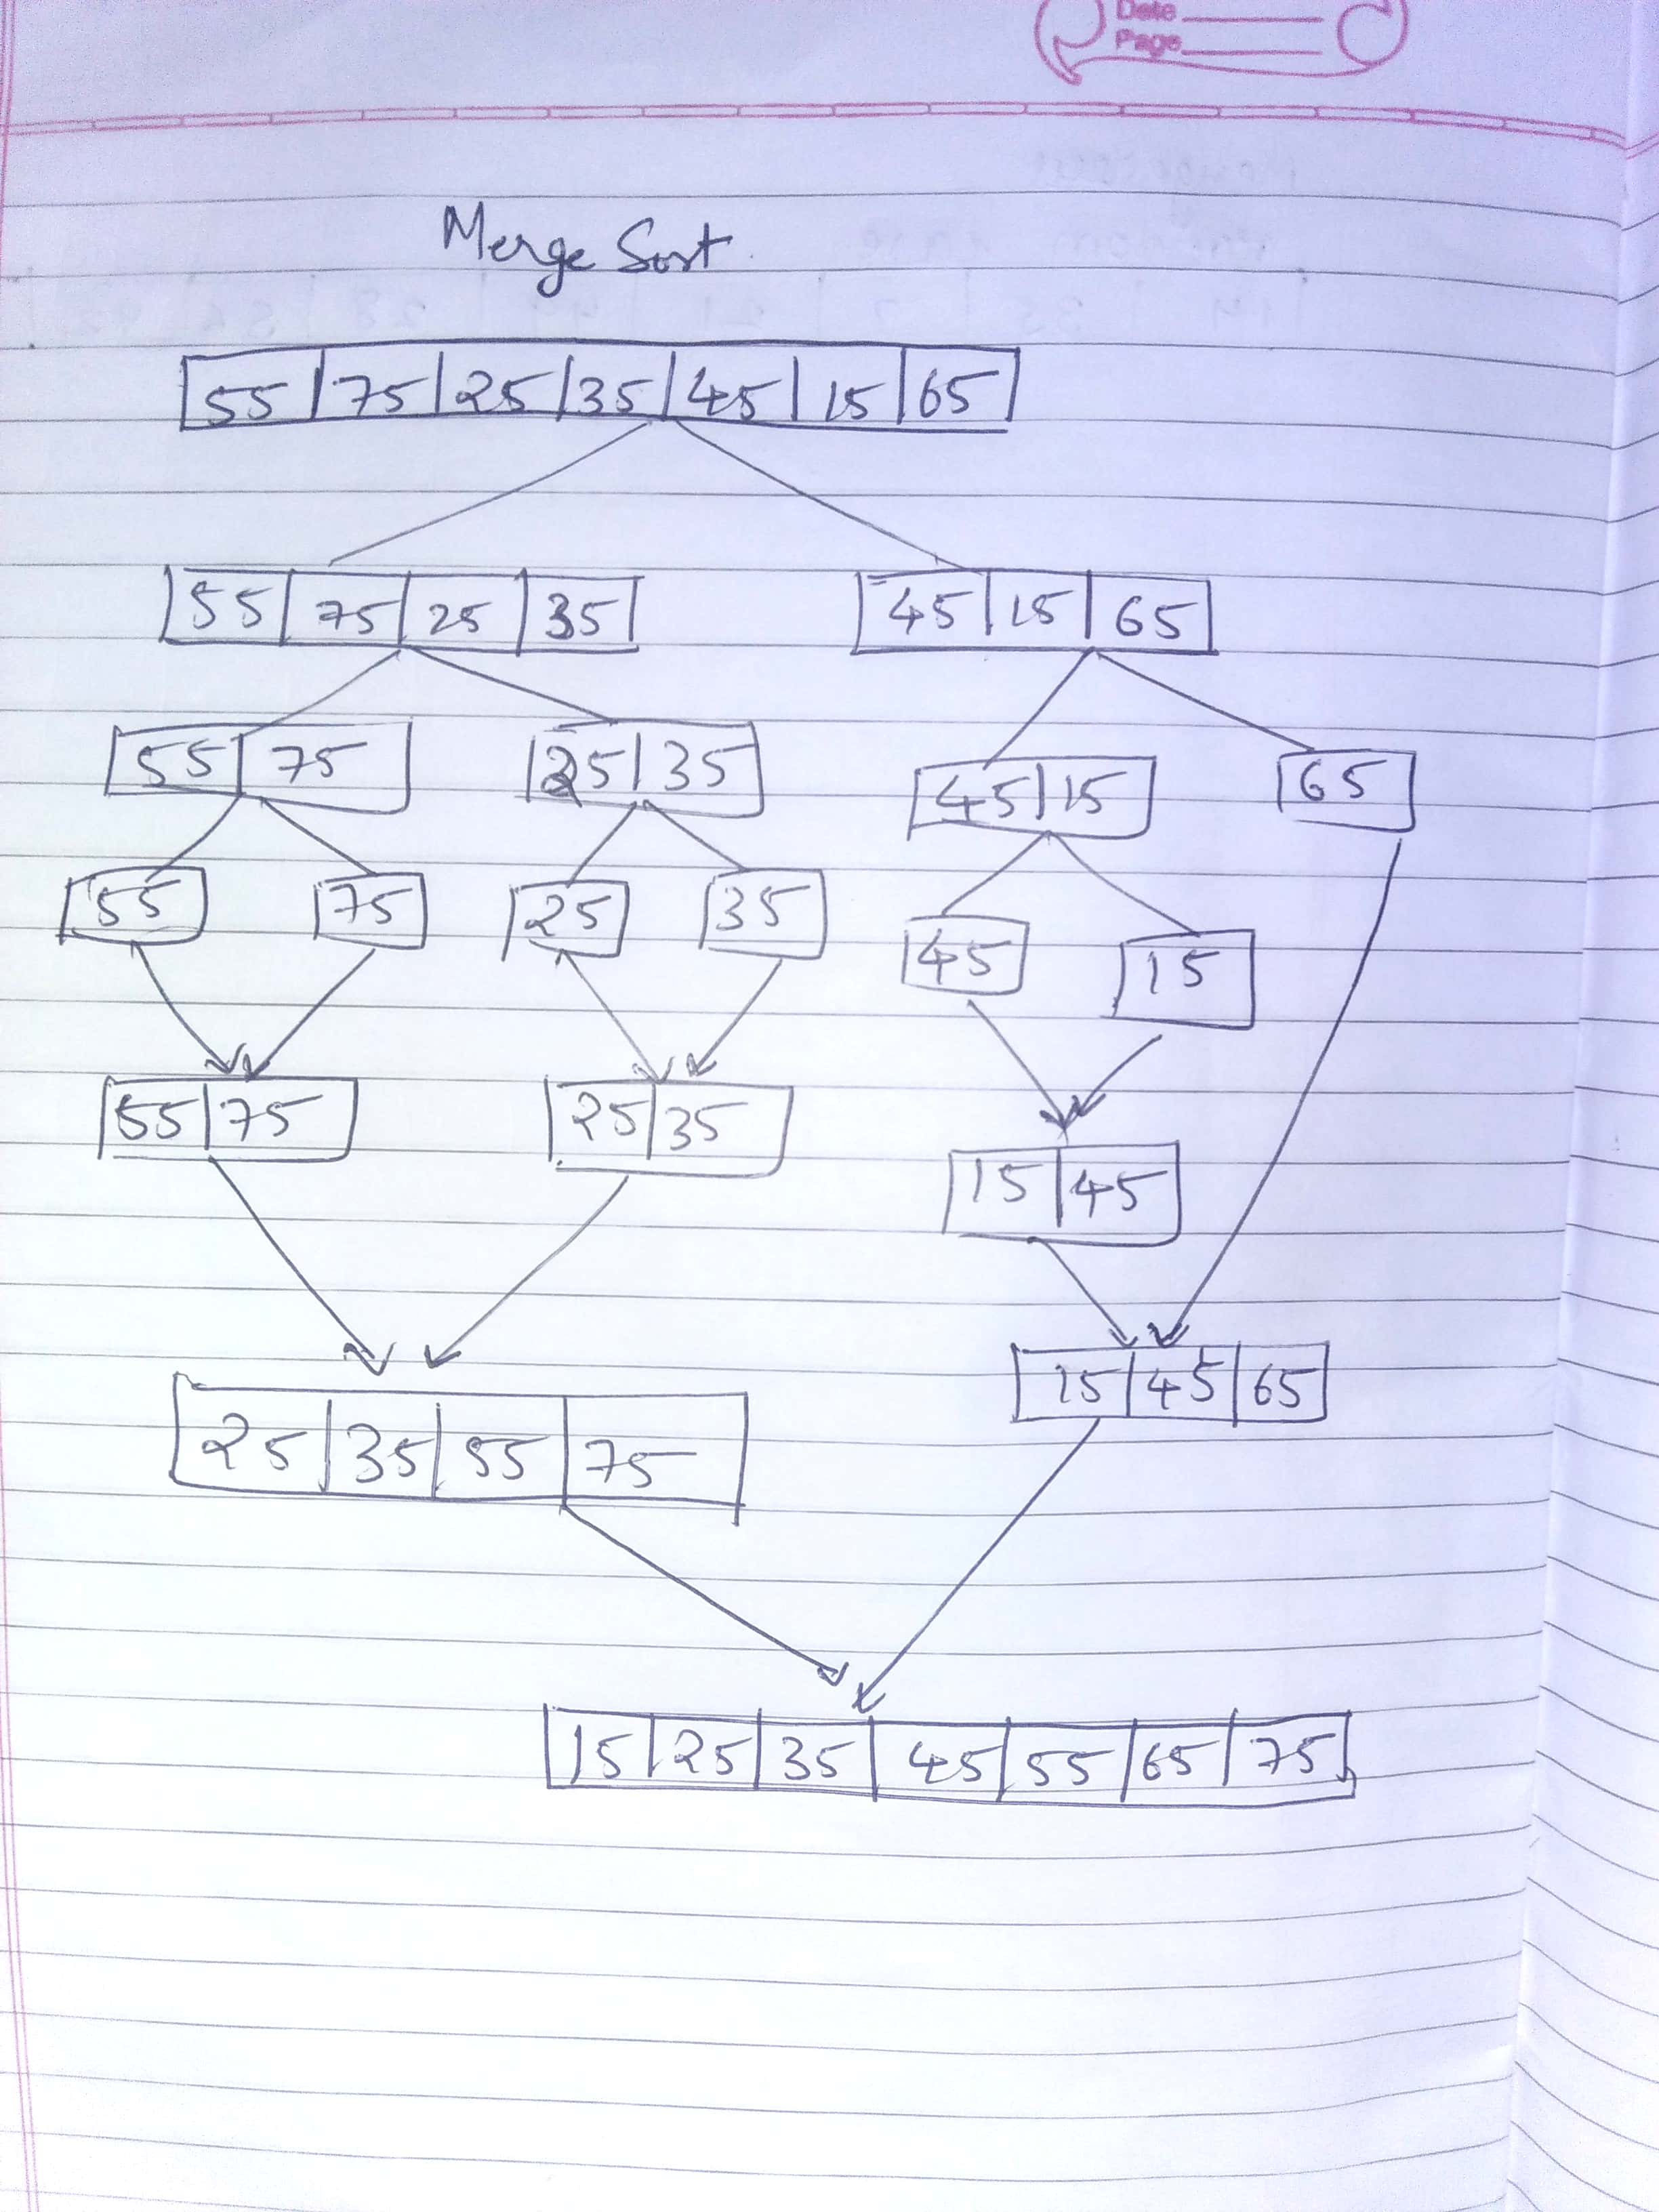 Date
Page
Merge Sort
55 75 25 35 45 15 65
55 75 25 35 45 15 65
55 75 25 35 45 15 65
55 75 25 35 45 15
55 75 25 35
15 45
15 45 65
25 35 55 75
15 25 35 45 55 65 75